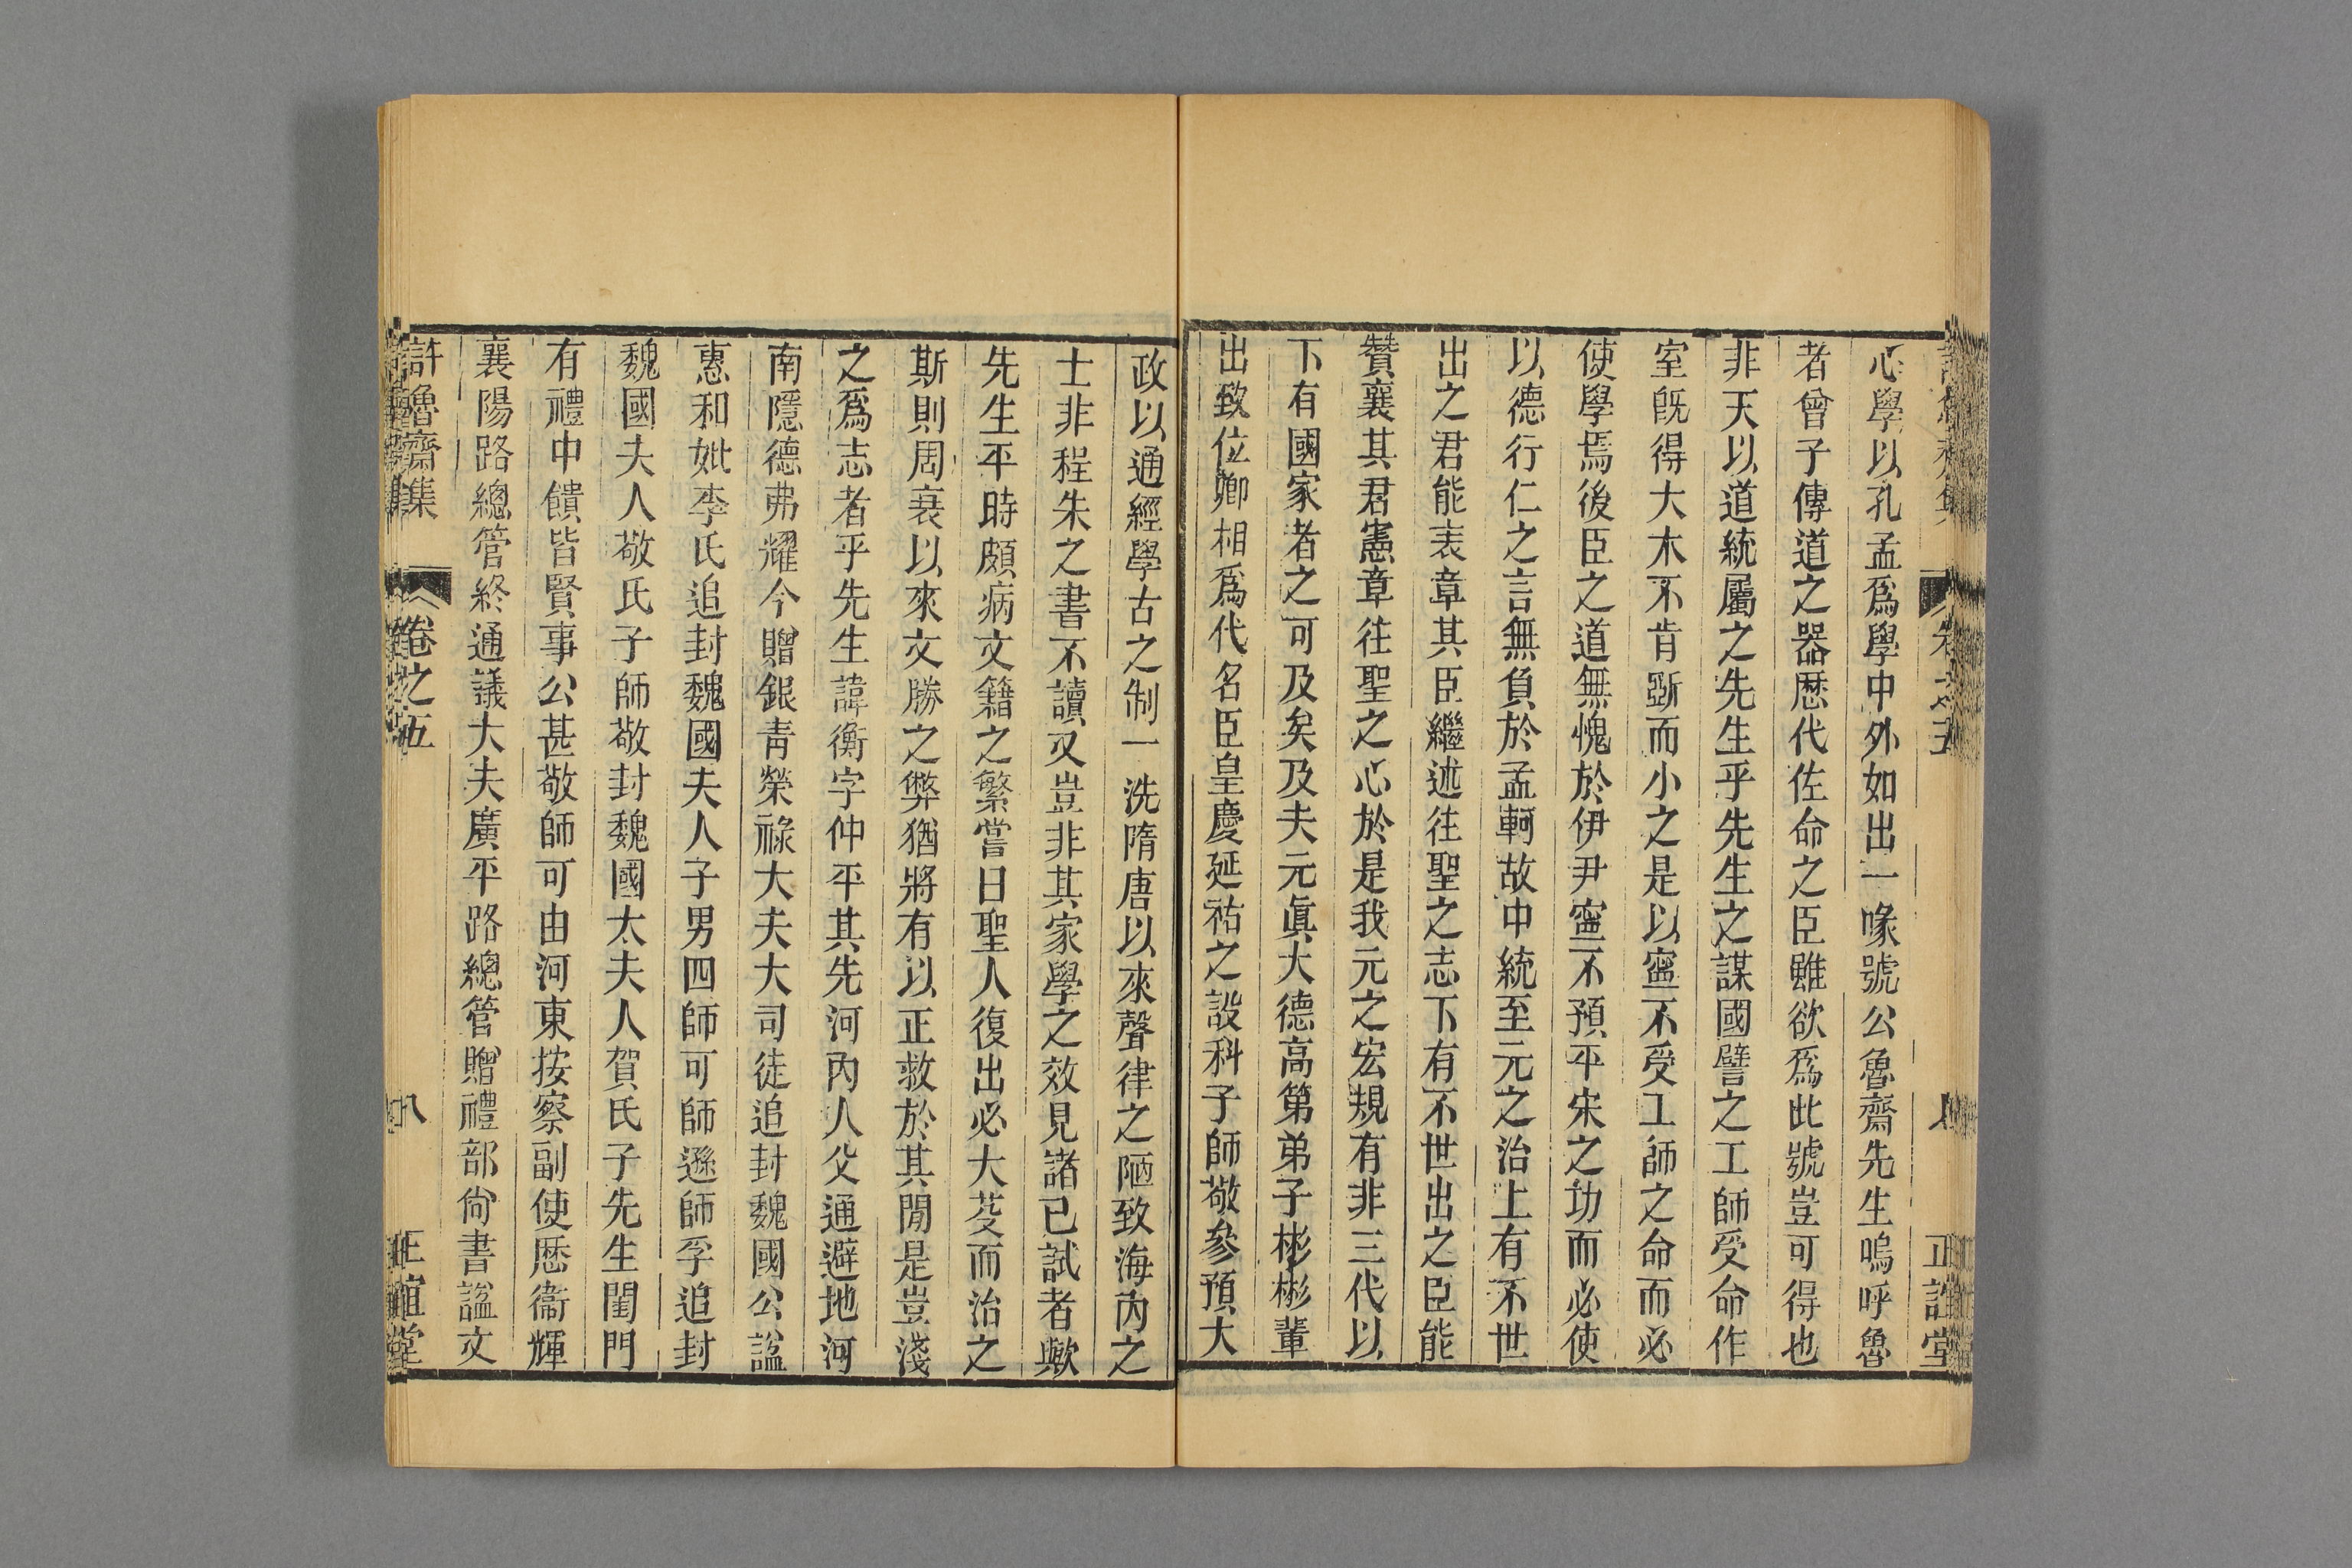 心學以孔孟爲學中外如出一喙號公魯齋先生嗚呼魯
者曾子傳道之器歷代佐命之臣雖欲爲此號豈可得也
非天以道統屬之先生乎先生之謀國譬之工師受命作
室旣得大木不肯斲而小之是以寧不受工師之命而必
使學焉後臣之道無愧於伊尹寧不預平宋之功而必使
以德行仁之言無負於孟軻故中統至元之治上有不世
出之君能表章其臣繼述往聖之志下有不世出之臣能
贊襄其君憲章往聖之心於是我元之宏規有非三代以
下有國家者之可及矣及夫元眞大德高第弟子彬彬輩
出致位卿相爲代名臣皇慶延祐之設科子師敬參預大
政以通經學古之制一洗隋唐以來聲律之陋致海內之
士非程朱之書不讀又豈非其家學之效見諸已試者歟
先生平時頗病文籍之繁嘗曰聖人復出必大芟而治之
斯則周衰以來文勝之弊猶將有以正救於其閒是豈淺
之爲志者乎先生諱衡字仲平其先河內人父通避地河
南隱德弗耀今贈銀青榮祿大夫大司徒追封魏國公諡
惠和妣李氏追封魏國夫人子男四師可師遜師孚追封
魏國夫人敬氏子師敬封魏國太夫人賀氏子先生閨門
有禮中饋皆賢事公甚敬師可由河東按察副使歷衞輝
襄陽路總管終通議大夫廣平路總管贈禮部尙書諡文
許魯齋集 卷之五 八 正誼堂